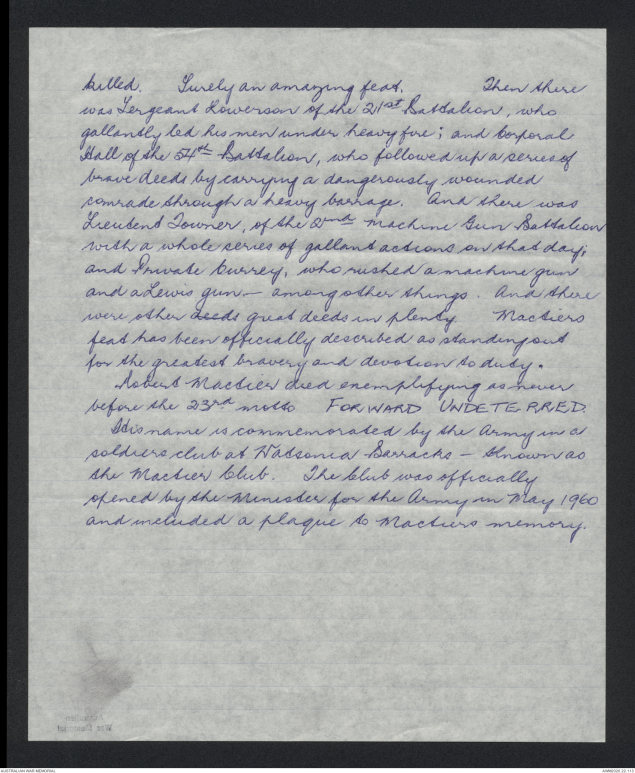 killed. Surely an amazing feat. Then there
was Sergeant Lowerson of the 21st Battalion, who
gallantly led his men under heavy fire; and Corporal
Hall of the 54th Battalion, who followed up a series of
brave deeds by carrying a dangerously wounded
comrade through a heavy barrage. And there was
Lieutent Towner, of the 2nd Machine Gun Battalion
with a whole series of gallant actions on that day;
and Private Currey, who rushed a machine gun
and a Lewis gun — among other things. And there
were other deeds great deeds in plenty Mactiers
feat has been officially described as standing out
for the greatest bravery and devotion to duty.
Robert Mactier died exemplifying as never
before the 23rd motto FORWARD UNDETERRED.
His name is commemorated by the Army in a
soldiers club at Watsonia Barracks — known as
the Mactier Club. The Club was officially
opened by the Minister for the Army in May 1960
and included a plaque to Mactiers memory.
Australian
War Memorial
AUSTRALIAN WAR MEMORIAL